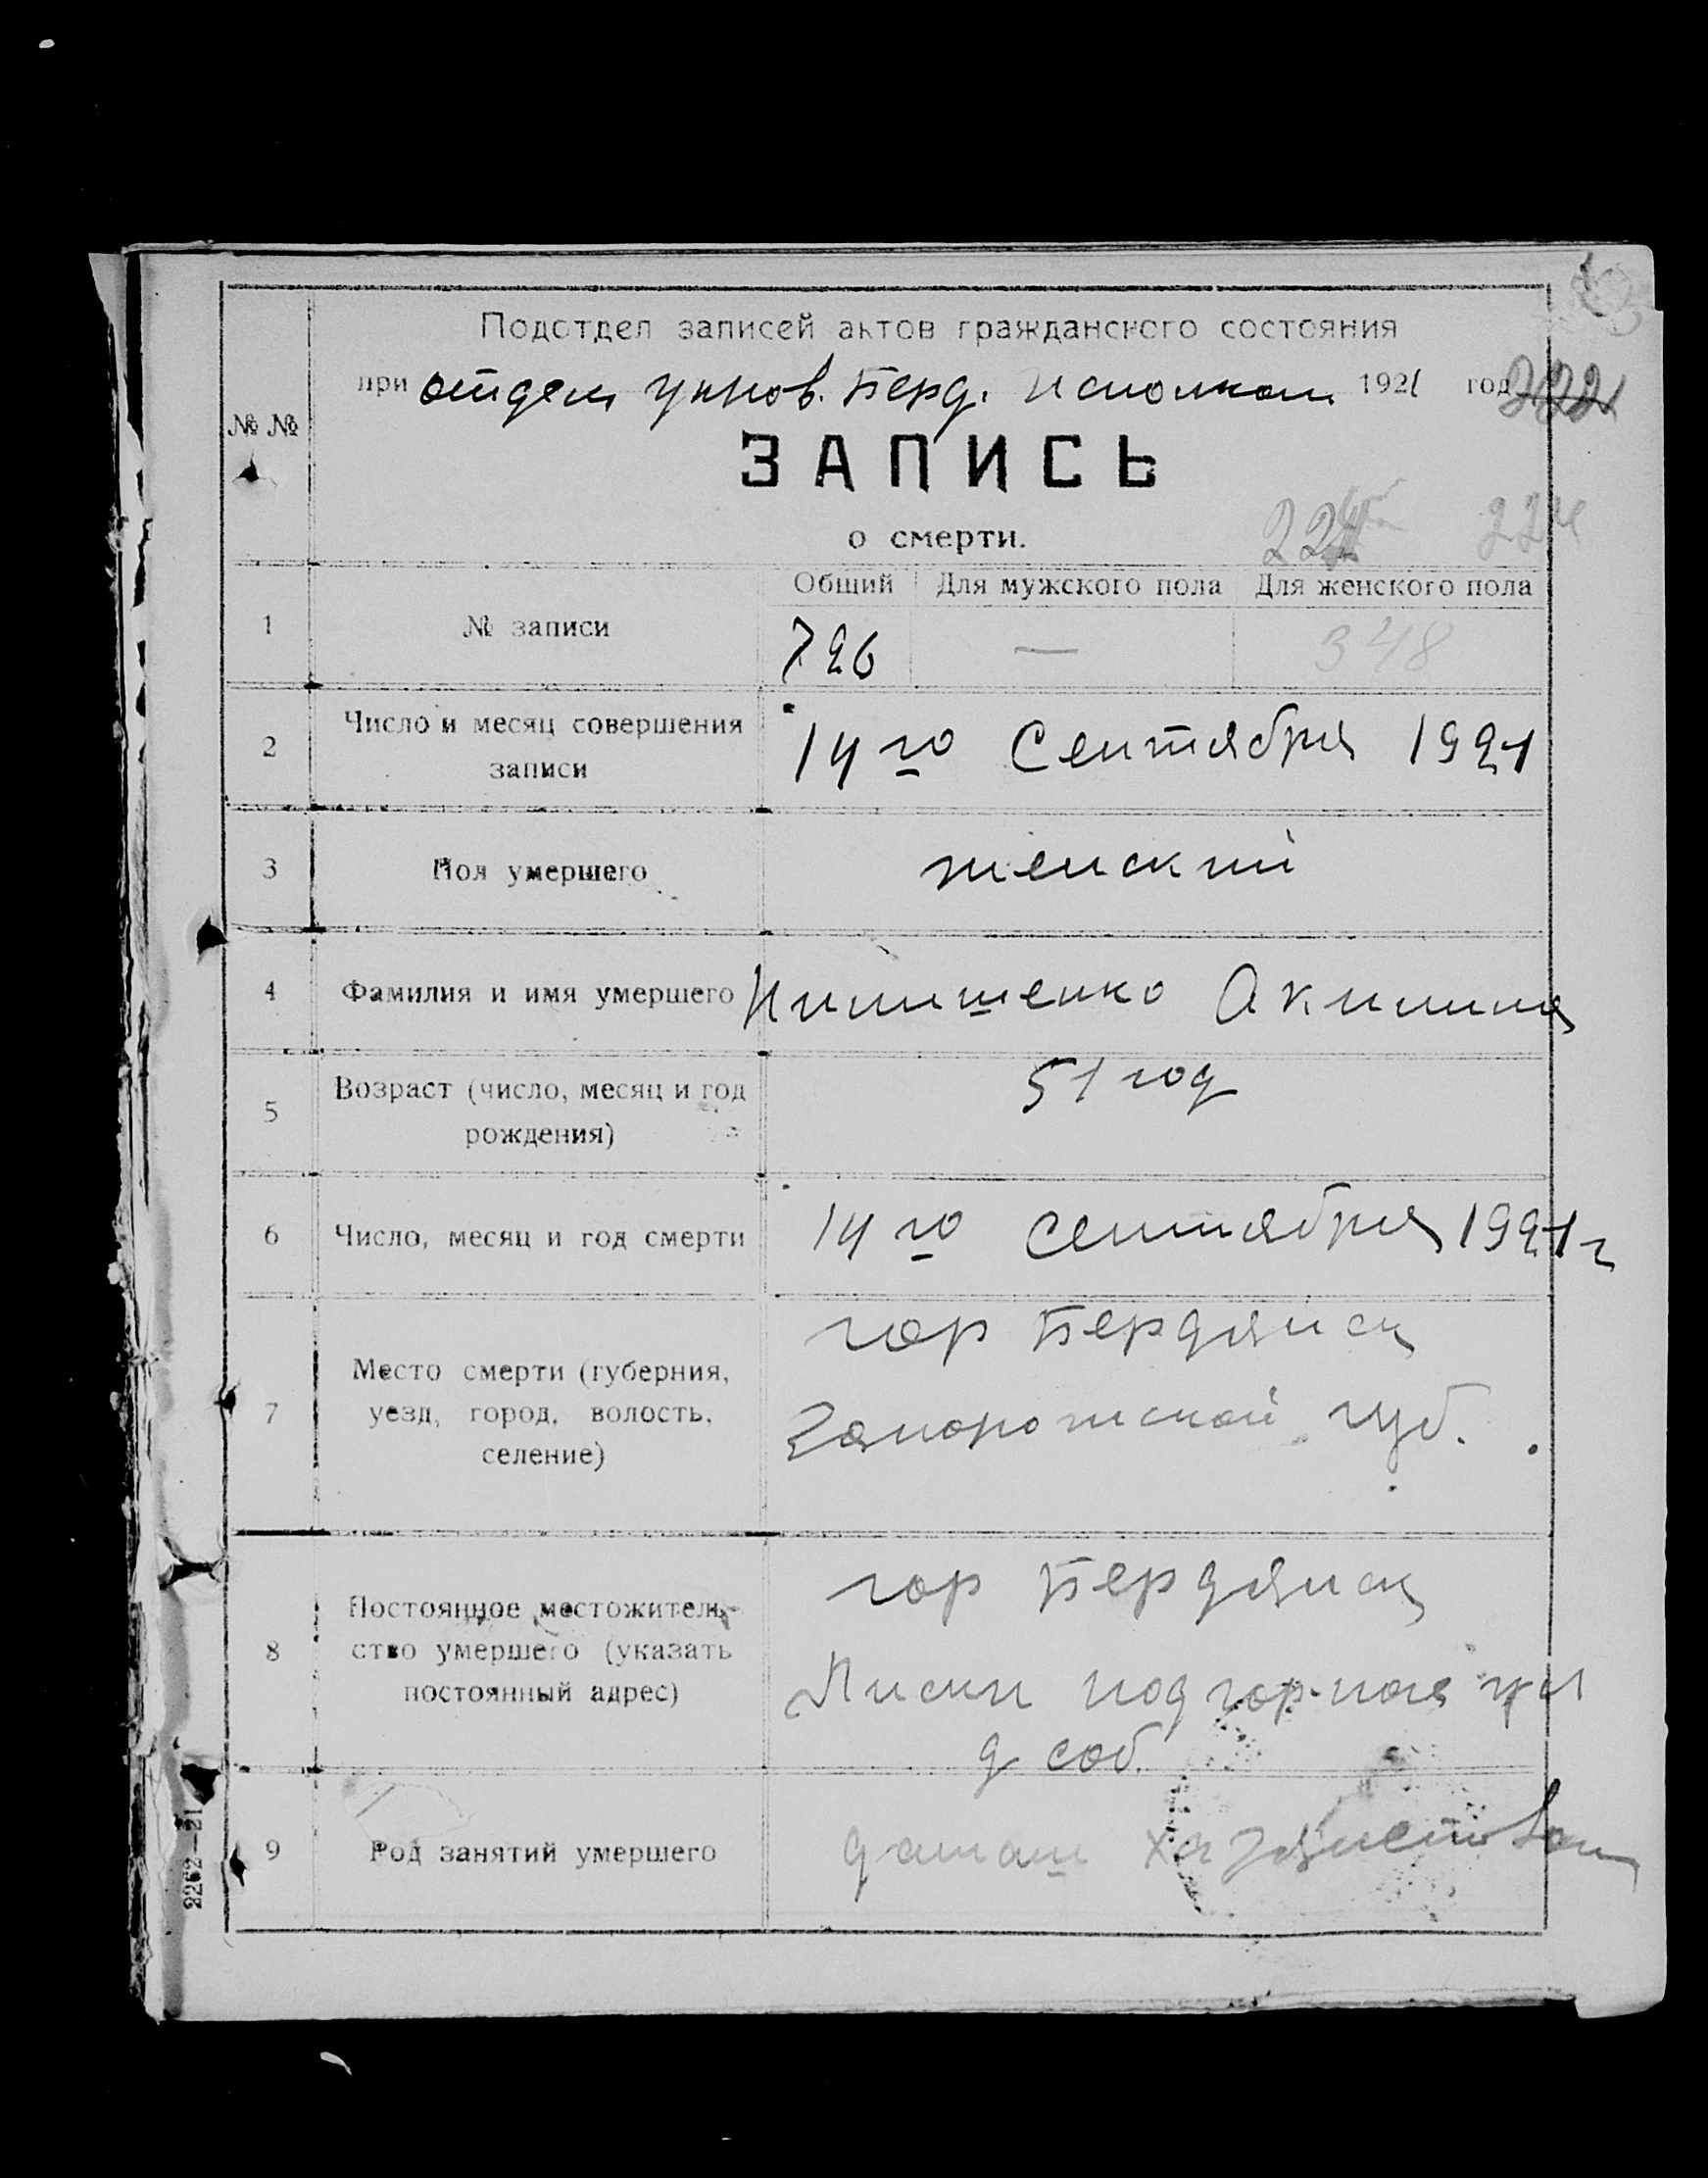 Подотдел записей актов гражданского состояния
при отдел управ. Берд. исполком 1921 год
222
№ №
ЗАПИСЬ
о смерти.
224
Общий Для мужского пола Для женского пола
1 № записи 726 — 348
2 Число и месяц совершения записи 14 го Сентября 1921
3 Пол умершего женский
4 Фамилия и имя умершего Акилина
5 Возраст (число, месяц и год рождения) 51 год
6 Число, месяц и год смерти 14 го сентября 1921 г
7 Место смерти (губерния, уезд, город, волость, селение) гор Бердянск
Запорожской губ.
8 Постоянное местожительство умершего (указать постоянный адрес) гор Бердянск
Лиски подгорная ул
д соб.
9 Род занятий умершего домаш хозяйством
2262—21